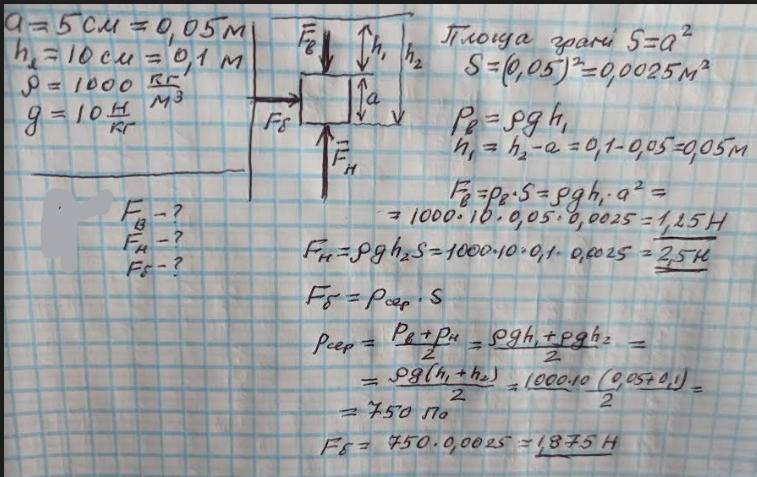 a = 5 см = 0,05 м
h₂ = 10 см = 0,1 м
ρ = 1000 кг/м³
g = 10 Н/кг
Fв - ?
Fн - ?
Fб - ?
F̄в h₁ h₂
a
Fб
F̄н
Площа грані S = a²
S = (0,05)² = 0,0025 м²
pв = ρgh₁
h₁ = h₂ - a = 0,1 - 0,05 = 0,05 м
Fв = pв · S = ρgh₁ · a² =
= 1000 · 10 · 0,05 · 0,0025 = 1,25 Н
Fн = ρgh₂S = 1000 · 10 · 0,1 · 0,0025 = 2,5 Н
Fб = pсер · S
pсер = (pв + pн)/2 = (ρgh₁ + ρgh₂)/2 =
= ρg(h₁ + h₂)/2 = 1000 · 10 (0,05 + 0,1)/2 =
= 750 Па
Fб = 750 · 0,0025 = 1,875 Н